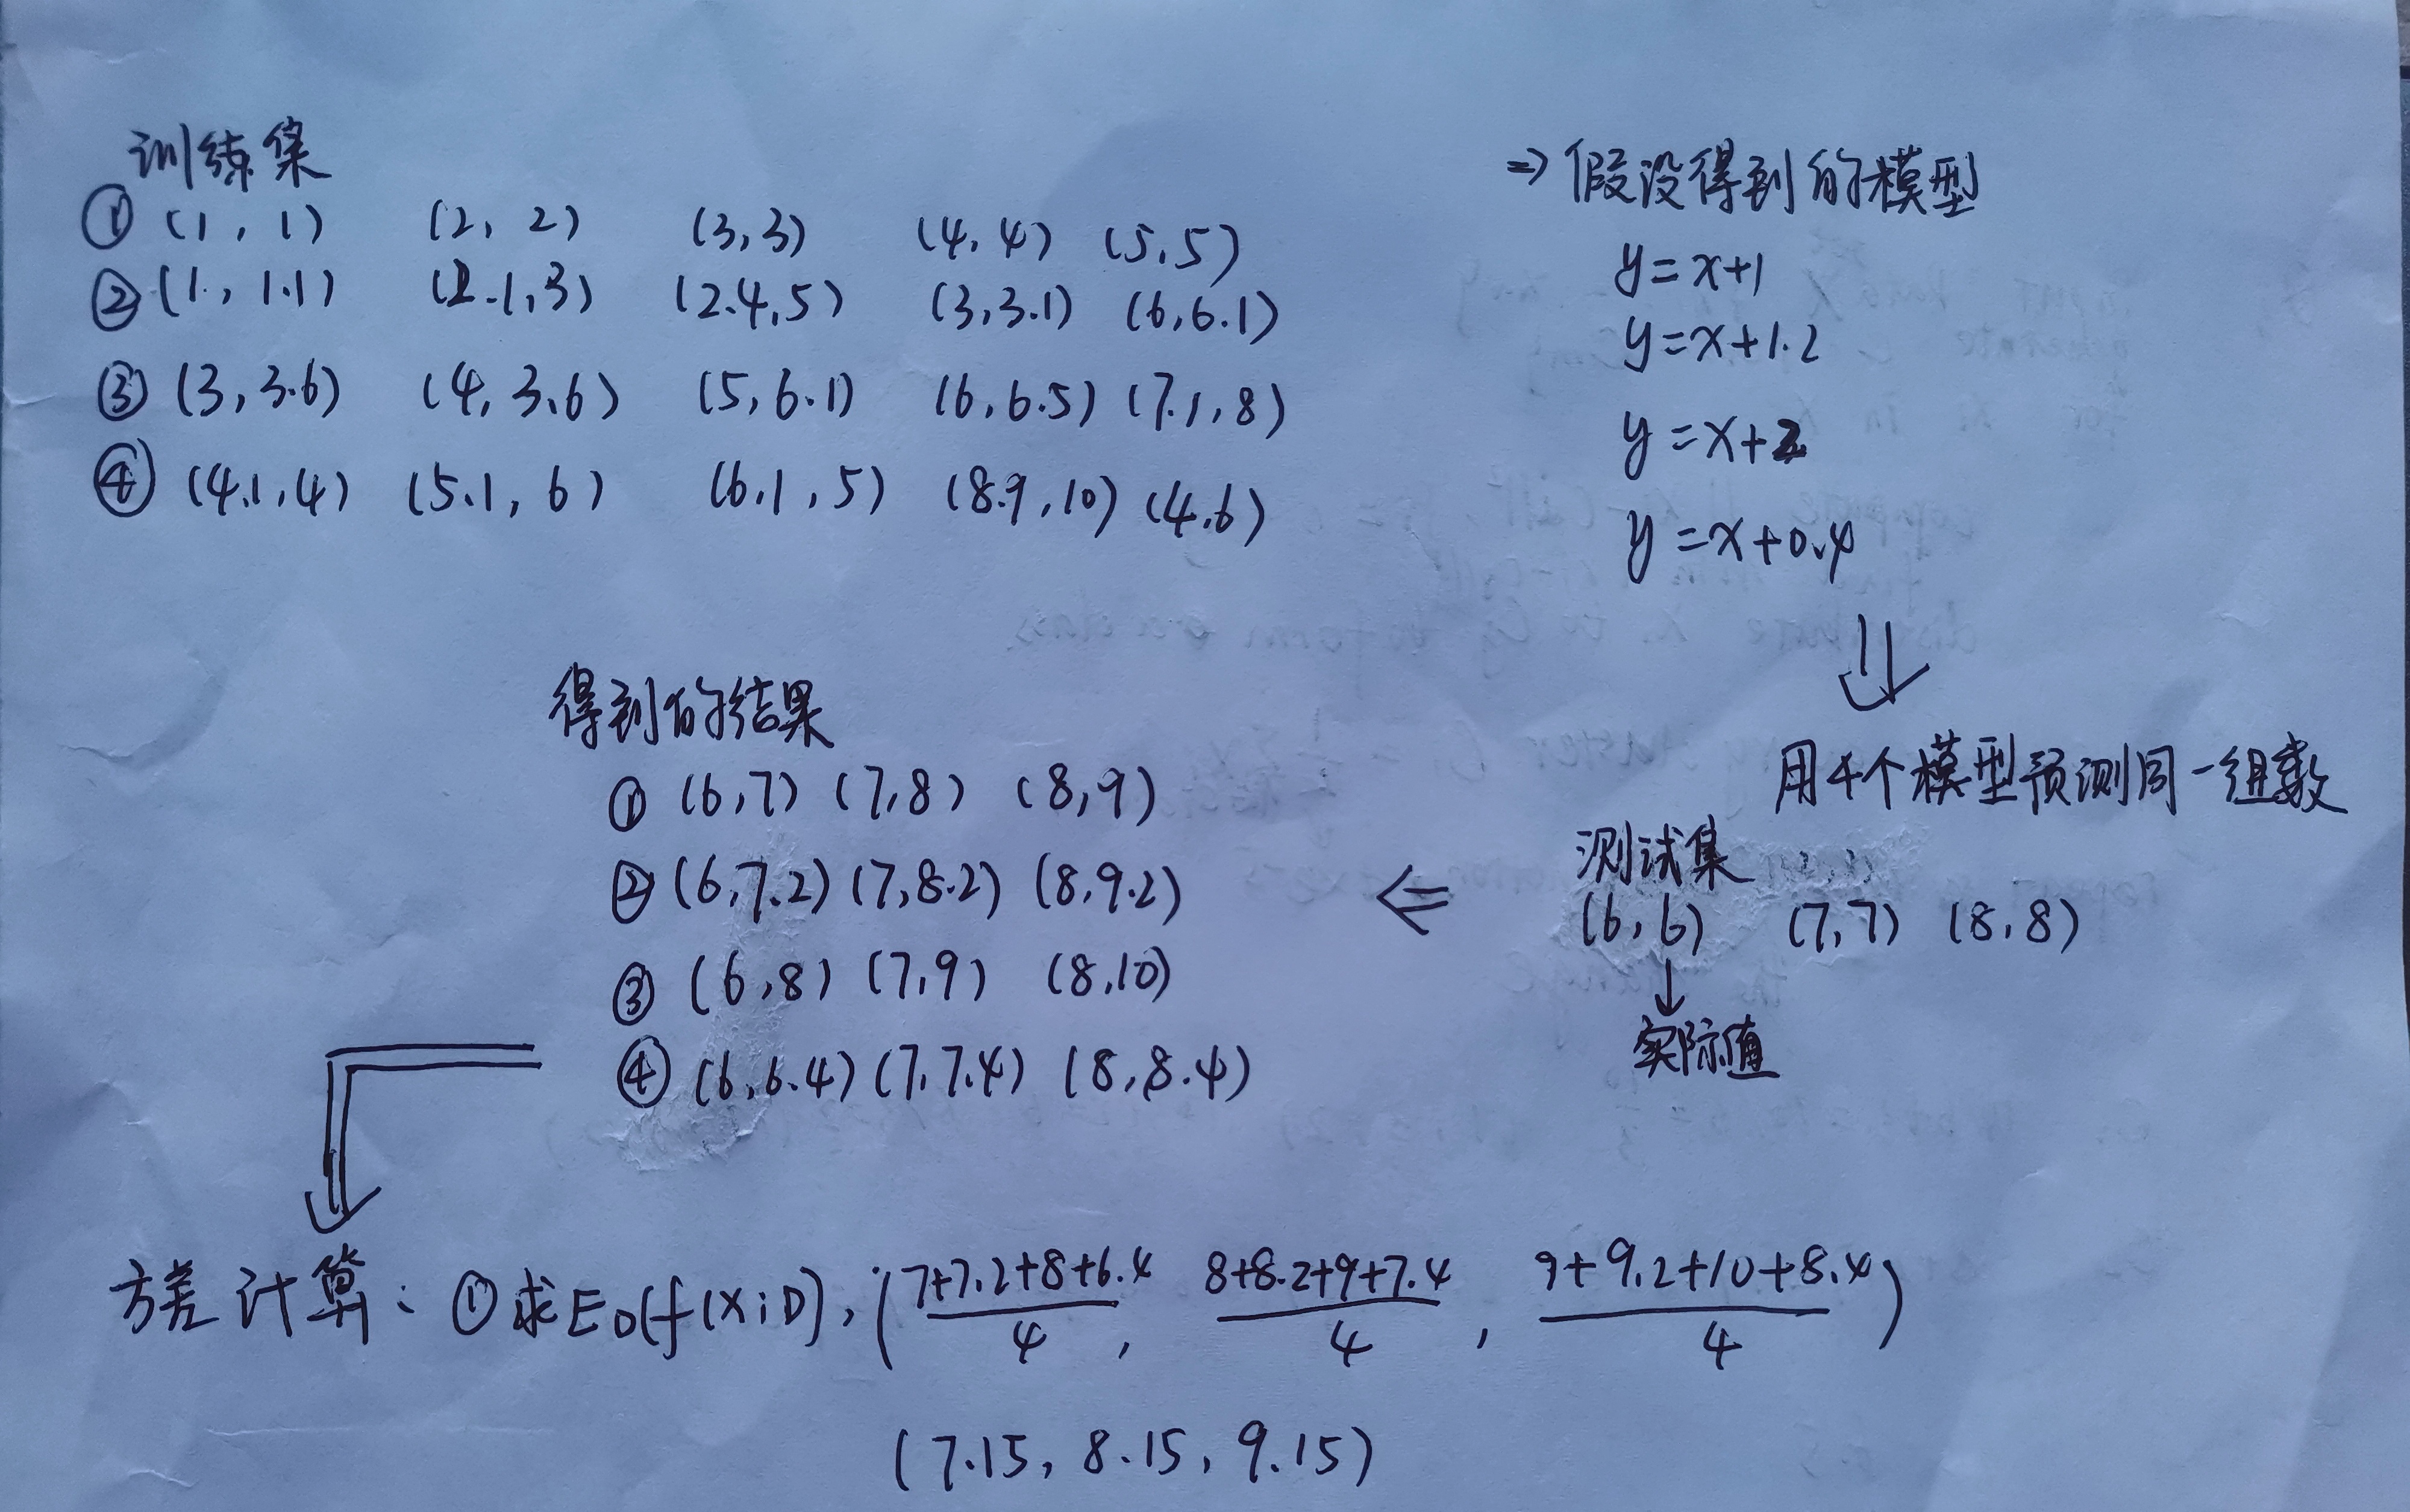 训练集
① (1, 1) (2, 2) (3,3) (4,4) (5,5)
② (1, 1.1) (2.1,3) (2.4,5) (3,3.1) (6,6.1)
③ (3,3.6) (4,3.6) (5,6.1) (6,6.5) (7.1,8)
④ (4.1,4) (5.1,6) (6.1,5) (8.9,10) (4.6)
⇒ 假设得到的模型
y=x+1
y=x+1.2
y=x+2
y=x+0.4
用4个模型预测同一组数
测试集
(6,6) (7,7) (8,8)
↓
实际值
⇐
得到的结果
① (6,7) (7,8) (8,9)
② (6,7.2) (7,8.2) (8,9.2)
③ (6,8) (7,9) (8,10)
④ (6,6.4) (7,7.4) (8,8.4)
方差计算: ①求E_D(f(x;D), (7+7.2+8+6.4/4, 8+8.2+9+7.4/4, 9+9.2+10+8.4/4)
(7.15, 8.15, 9.15)